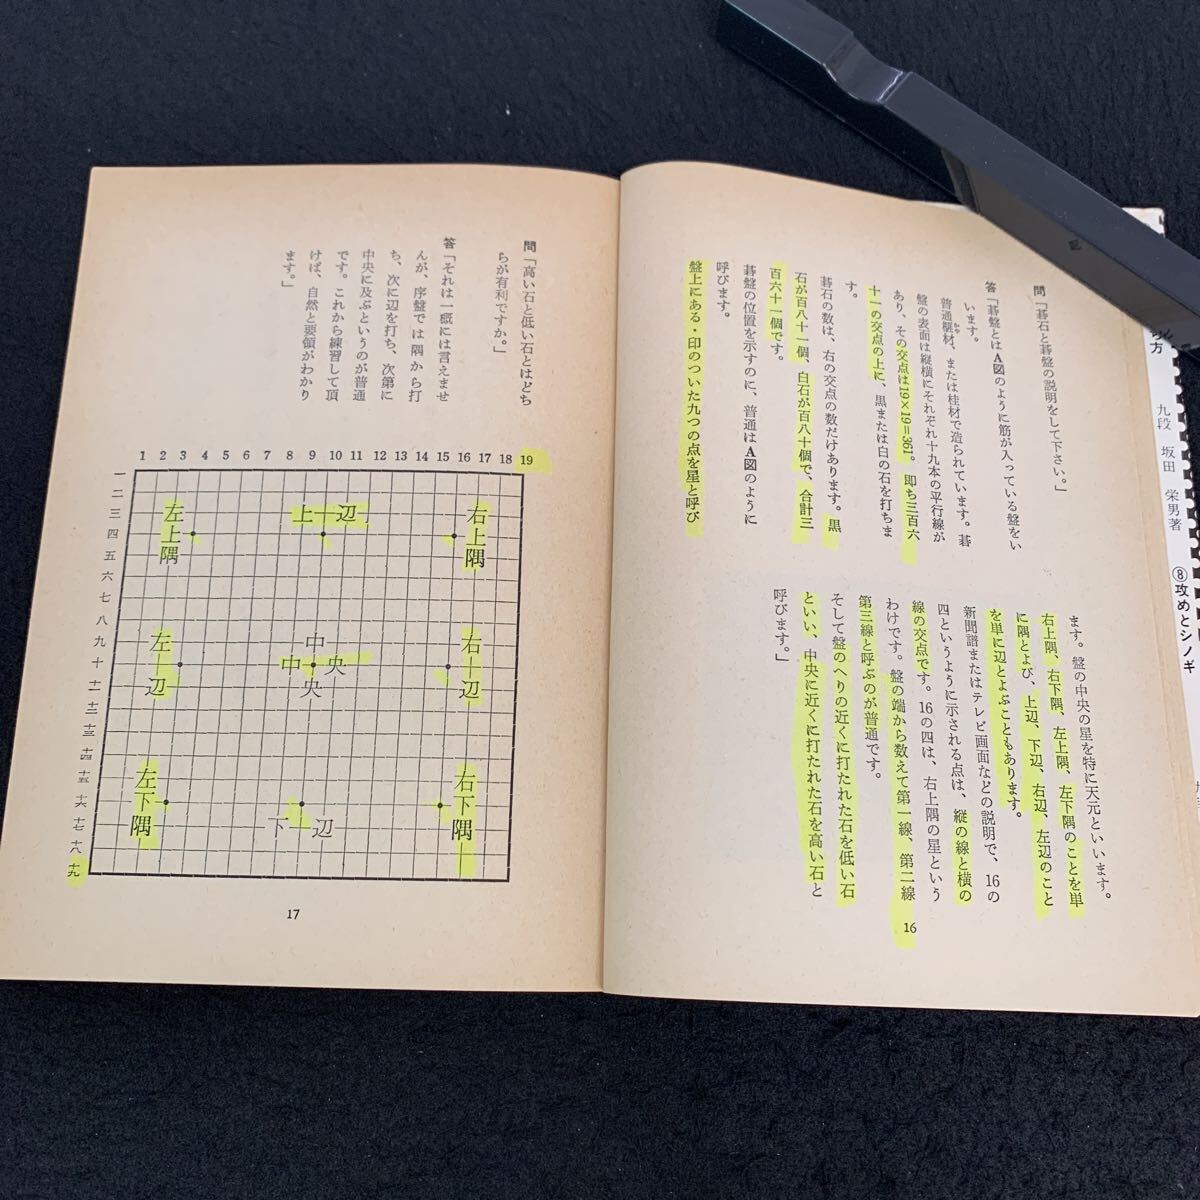 問「碁石と碁盤の説明をして下さい。」
答「碁盤とはA図のように筋が入っている盤をい
います。
普通榧材、または桂材で造られています。碁
盤の表面は縦横にそれぞれ十九本の平行線が
あり、その交点は19×19=361。即ち三百六
十一の交点の上に、黒または白の石を打ちま
す。
碁石の数は、右の交点の数だけあります。黒
石が百八十一個、白石が百八十個で、合計三
百六十一個です。
碁盤の位置を示すのに、普通はA図のように
呼びます。
盤上にある・印のついた九つの点を星と呼び
ます。盤の中央の星を特に天元といいます。
右上隅、右下隅、左上隅、左下隅のことを単
に隅とよび、上辺、下辺、右辺、左辺のこと
を単に辺とよぶこともあります。
新聞譜またはテレビ画面などの説明で、16の
四というように示される点は、縦の線と横の
線の交点です。16の四は、右上隅の星という
わけです。盤の端から数えて第一線、第二線
第三線と呼ぶのが普通です。
そして盤のへりの近くに打たれた石を低い石
といい、中央に近くに打たれた石を高い石と
呼びます。」
16
問「高い石と低い石とはどち
らが有利ですか。」
答「それは一概には言えませ
んが、序盤では隅から打
ち、次に辺を打ち、次第に
中央に及ぶというのが普通
です。これから練習して頂
けば、自然と要領がわかり
ます。」
1 2 3 4 5 6 7 8 9 10 11 12 13 14 15 16 17 18 19
一
二
三
四
五
六
七
八
九
十
十一
十二
十三
十四
十五
十六
十七
十八
十九
左上隅
上辺
右上隅
左辺
中央
中央
右辺
左下隅
下辺
右下隅
17
方
九段 坂田 栄男著
⑧攻めとシノギ